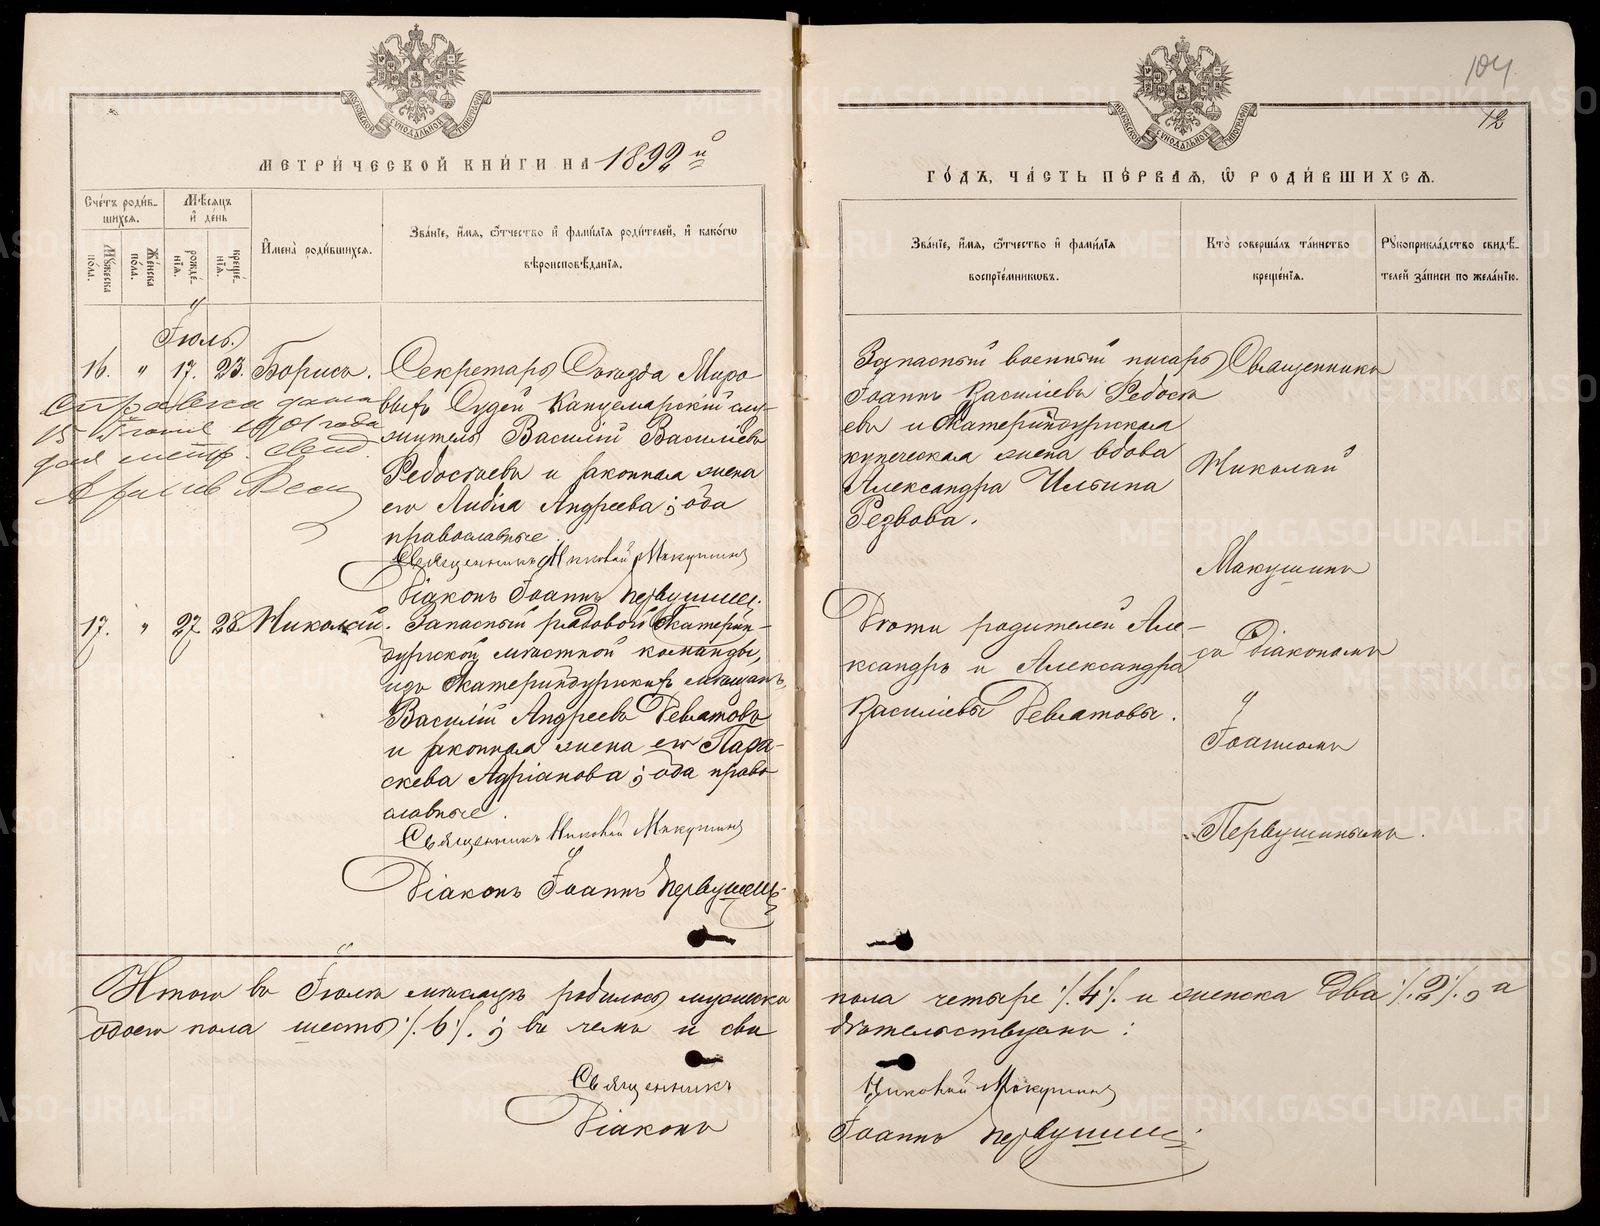 104
12
МОСКОВСКОЙ СѴНОДАЛЬНОЙ ТИПОГРАФІИ
МОСКОВСКОЙ СѴНОДАЛЬНОЙ ТИПОГРАФІИ
МЕТРИ́ЧЕСКОЙ КНИ́ГИ НА 1892 й
ГО́ДЪ, ЧА́СТЬ ПЕ́РВАЯ, Ѽ РОДИ́ВШИХСЯ.
Сче́тъ роди́в-
шихся.
Мѣ́сяцъ
и҆ де́нь
Мꙋ́жеска
по́ла.
Же́нска
по́ла.
рожде́-
нїя.
креще́-
нїя.
И҆мена̀ роди́вшихся.
Зва́нїе, и҆́мя, ѻ҆́тчество и҆ фами́лїя роди́телей, и҆ како́гѡ
вѣроисповѣ́данїя.
Зва́нїе, и҆́мя, ѻ҆́тчество и҆ фами́лїя
воспрїе́мникѡвъ.
Кто̀ соверша́лъ та́инство
креще́нїя.
Рꙋкоприкла́дство свидѣ́-
телей за́писи по жела́нїю.
Іюль.
16. " 17. 23. Борисъ.
Секретарь Съѣзда Миро
выхъ Судей Канцелярскій слу-
житель Василій Васильевъ
Ребостаевъ и законная жена
его Лидія Андреева; оба
православные.
Священникъ Николай Макушинъ
Діаконъ Іоаннъ Первушинъ.
Справка дана
15 1901 года
Запасный военный писарь
Іоаннъ Васильевъ Ребоста
евъ и Екатеринбургская
купеческая жена вдова
Александра Ильина
Рѣзвова.
Священникъ
Николай
Макушинъ
17. " 27 28 Николай.
Запасный рядовой Екатерин-
бургской мѣстной команды,
изъ Екатеринбургскихъ мѣщанъ,
Василій Андреевъ Девятовъ
и законная жена его Пара-
скева Адріанова; оба право
славные.
Священникъ Николай Макушинъ
Діаконъ Іоаннъ Первушинъ
Дѣти родителей Але-
ксандръ и Александра
Васильевы Девятовы.
съ Діакономъ
"
Іоанномъ
Первушинымъ.
Итого въ Іюлѣ мѣсяцѣ родилось мужска
пола четыре ./.4./. и женска два ./.2./., а
обоего пола шесть ./.6./.; въ чемъ и сви
дѣтельствуемъ:
Священникъ Николай Макушинъ
Діаконъ Іоаннъ Первушинъ
METRIKI.GASO-URAL.RU